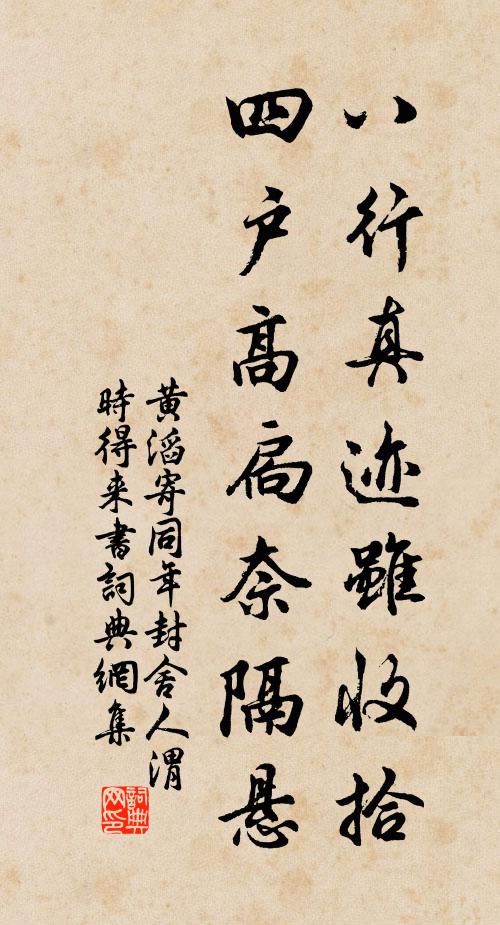 八行真迹雖收拾
四户高扃奈隔悬
黄滔寄同年封舍人渭
時得来書詞典網集
詞典
网印